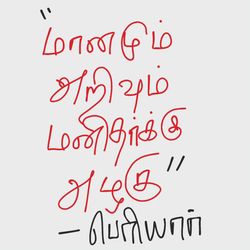 "மானமும்
அறிவும்
மனிதர்க்கு
அழகு"
– பெரியார்